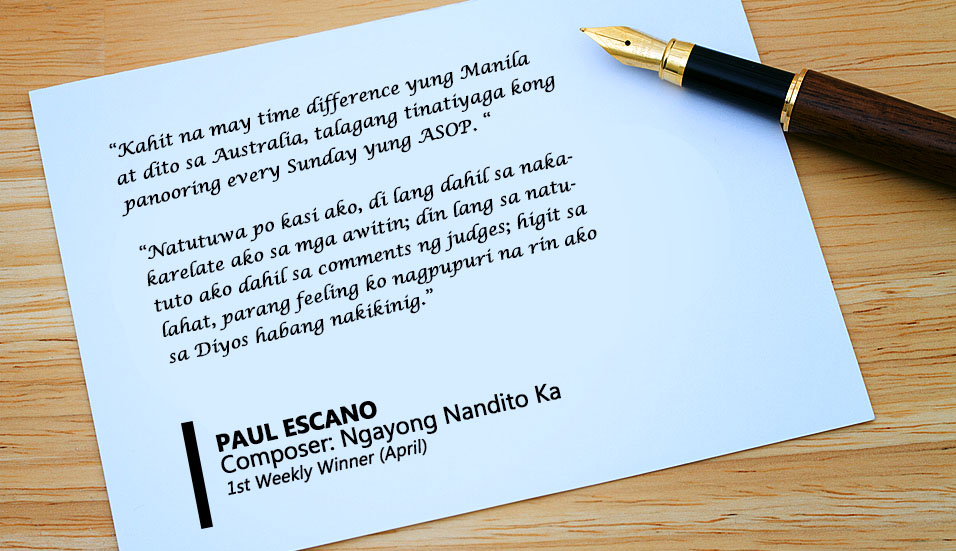 “Kahit na may time difference yung Manila
at dito sa Australia, talagang tinatiyaga kong
panooring every Sunday yung ASOP. “
“Natutuwa po kasi ako, di lang dahil sa naka-
karelate ako sa mga awitin; din lang sa natu-
tuto ako dahil sa comments ng judges; higit sa
lahat, parang feeling ko nagpupuri na rin ako
sa Diyos habang nakikinig.”
PAUL ESCANO
Composer: Ngayong Nandito Ka
1st Weekly Winner (April)